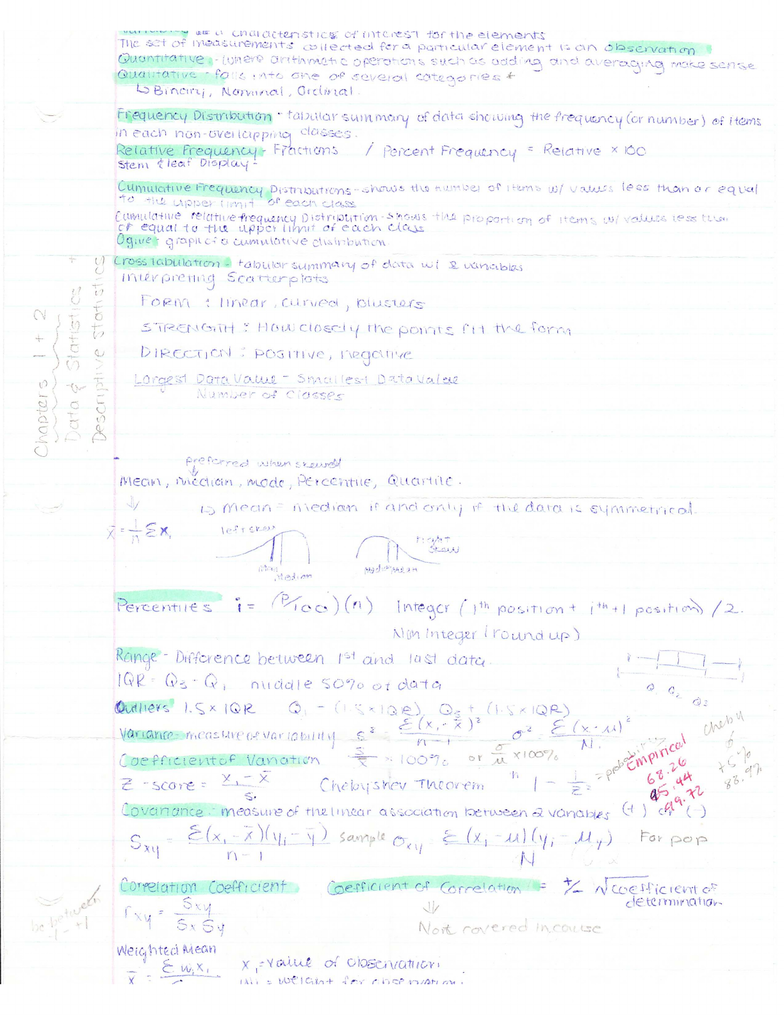 Variable is a characteristics of interest for the elements
The set of measurements collected for a particular element is an observation
Quantitative - where arithmetic operations such as adding and averaging make sense
Qualitative - falls into one of several categories *
↳ Binary, Nominal, Ordinal
Frequency Distribution - tabular summary of data showing the frequency (or number) of items
in each non-overlapping classes.
Relative Frequency - Fractions / Percent Frequency = Relative × 100
Stem & leaf Display -
Cumulative Frequency Distributions - shows the number of items w/ values less than or equal
to the upper limit of each class
Cumulative relative frequency Distribution - shows the proportion of items w/ values less than
or equal to the upper limit of each class
Ogive - graph of a cumulative distribution
Cross tabulation - tabular summary of data w/ 2 variables
Interpreting Scatterplots
FORM : linear, curved, clusters
STRENGTH : How closely the points fit the form
DIRECTION : positive, negative
Largest Data Value - Smallest Data Value
Number of Classes
Chapters 1 + 2
Data & Statistics +
Descriptive Statistics
preferred when skewed
Mean, Median, mode, Percentile, Quartile.
↳ Mean = median if and only if the data is symmetrical.
x̄ = 1/n Σxᵢ
left skew
right skew
Median
Median Mean
Percentiles i = (P/100)(n) Integer (iᵗʰ position + iᵗʰ+1 position) /2.
Non Integer (round up)
Range - Difference between 1st and last data.
IQR - Q₃ - Q₁ middle 50% of data
Q₂
Outliers 1.5 × IQR Q₁ - (1.5 × IQR), Q₃ + (1.5 × IQR)
Variance - measure of variability s² = Σ(xᵢ - x̄)² / n-1 σ² = Σ(x - μ)² / N.
Coefficient of Variation s/x̄ × 100% or σ/μ × 100%
Z-score = xᵢ - x̄ / s. Chebyshev Theorem 1 - 1/z² = probability
Empirical
68.26
95.44
99.72
Cheby
75%
88.9%
Covariance - measure of the linear association between 2 variables (+) or (-)
Sxy = Σ(xᵢ - x̄)(yᵢ - ȳ) / n-1 sample σxy = Σ(xᵢ - μ)(yᵢ - μy) / N For pop
Correlation Coefficient Coefficient of Correlation = +/- √coefficient of determination
rxy = Sxy / Sx Sy
be between
-1 +1
Not covered in course
Weighted Mean
x̄ = Σ wᵢxᵢ xᵢ = value of observation i
wᵢ = weight for observation i